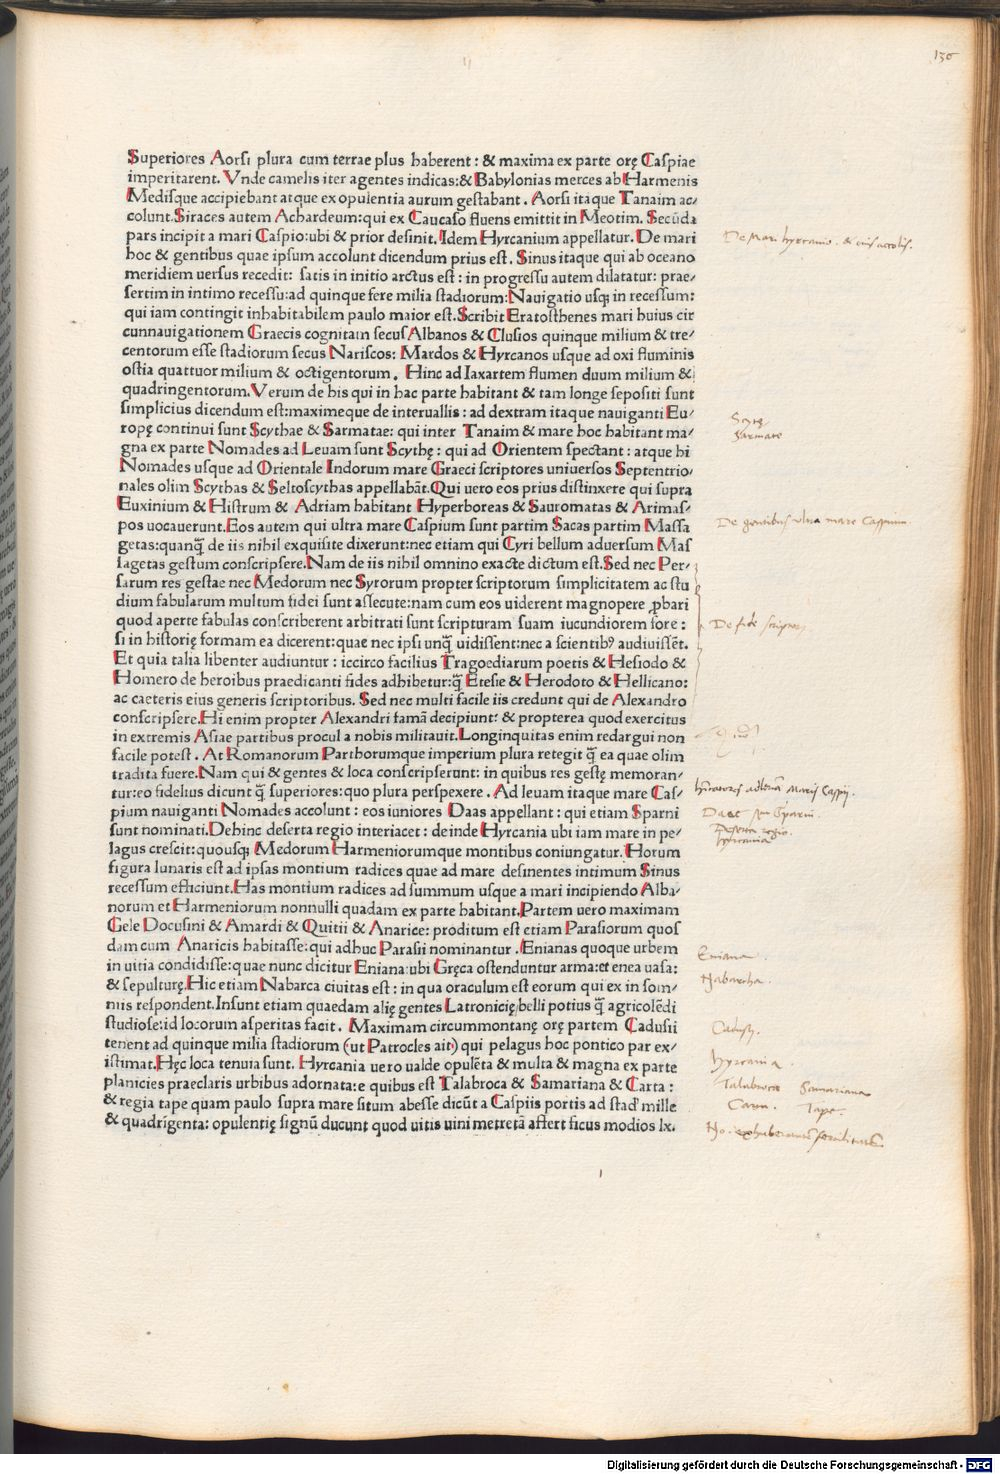 136
Superiores Aorsi plura cum terrae plus haberent: & maxima ex parte orę Caspiae
imperitarent. Vnde camelis iter agentes indicas:& Babylonias merces ab Harmenis
Medisque accipiebant atque ex opulentia aurum gestabant. Aorsi itaque Tanaim ac⸗
colunt. Siraces autem Achardeum:qui ex Caucaso fluens emittit in Meotim. Secūda
pars incipit a mari Caspio:ubi & prior desinit. Idem Hyrcanium appellatur. De mari
hoc & gentibus quae ipsum accolunt dicendum prius est. Sinus itaque qui ab oceano
meridiem uersus recedit: satis in initio arctus est: in progressu autem dilatatur: prae⸗
sertim in intimo recessu:ad quinque fere milia stadiorum:Nauigatio usqꝫ in recessum:
qui iam contingit inhabitabilem paulo maior est. Scribit Eratosthenes mari huius cir
cunnauigationem Graecis cognitam secus Albanos & Clusios quinque milium & tre⸗
centorum esse stadiorum secus Nariscos: Mardos & Hyrcanos usque ad oxi fluminis
ostia quattuor milium & octigentorum. Hinc ad Iaxartem flumen duum milium &
quadringentorum. Verum de his qui in hac parte habitant & tam longe sepositi sunt
simplicius dicendum est:maximeque de interuallis: ad dextram itaque nauiganti Eu⸗
ropę continui sunt Scythae & Sarmatae: qui inter Tanaim & mare hoc habitant ma⸗
gna ex parte Nomades ad Leuam sunt Scythę: qui ad Orientem spectant: atque hi
Nomades usque ad Orientale Indorum mare Graeci scriptores uniuersos Septentrio⸗
nales olim Scythas & Seltoscythas appellabāt. Qui uero eos prius distinxere qui supra
Euxinium & Histrum & Adriam habitant Hyperboreas & Sauromatas & Arimas⸗
pos uocauerunt. Eos autem qui ultra mare Caspium sunt partim Sacas partim Massa
getas:quanq̃ de iis nihil exquisite dixerunt:nec etiam qui Cyri bellum aduersum Mas
sagetas gestum conscripsere. Nam de iis nihil omnino exacte dictum est. Sed nec Per⸗
sarum res gestae nec Medorum nec Syrorum propter scriptorum simplicitatem ac stu
dium fabularum multum fidei sunt assecute:nam cum eos uiderent magnopere ꝓbari
quod aperte fabulas conscriberent arbitrati sunt scripturam suam iucundiorem fore:
si in historię formam ea dicerent:quae nec ipsi unq̃ uidissent:nec a scientibꝰ audiuissēt.
Et quia talia libenter audiuntur: iccirco facilius Tragoediarum poetis & Hesiodo &
Homero de heroibus praedicanti fides adhibetur:q̃ Etesie & Herodoto & Hellicano:
ac caeteris eius generis scriptoribus. Sed nec multi facile iis credunt qui de Alexandro
conscripsere. Hi enim propter Alexandri famā decipiunt: & propterea quod exercitus
in extremis Asiae partibus procul a nobis militauit. Longinquitas enim redargui non
facile potest. At Romanorum Parthorumque imperium plura retegit q̃ ea quae olim
tradita fuere. Nam qui & gentes & loca conscripserunt: in quibus res gestę memoran⸗
tur:eo fidelius dicunt q̃ superiores:quo plura perspexere. Ad leuam itaque mare Cas⸗
pium nauiganti Nomades accolunt: eos iuniores Daas appellant: qui etiam Sparni
sunt nominati. Dehinc deserta regio interiacet: deinde Hyrcania ubi iam mare in pe⸗
lagus crescit:quousqꝫ Medorum Harmeniorumque montibus coniungatur. Horum
figura lunaris est ad ipsas montium radices quae ad mare desinentes intimum Sinus
recessum efficiunt. Has montium radices ad summum usque a mari incipiendo Alba⸗
norum et Harmeniorum nonnulli quadam ex parte habitant. Partem uero maximam
Gele Docusini & Amardi & Quitii & Anarice: proditum est etiam Parasiorum quos
dam cum Anaricis habitasse:qui adhuc Parasii nominantur. Enianas quoque urbem
in uitia condidisse:quae nunc dicitur Eniana:ubi Gręca ostenduntur arma:et enea uasa:
& sepulturę. Hic etiam Nabarca ciuitas est: in qua oraculum est eorum qui ex in som⸗
niis respondent. Insunt etiam quaedam alię gentes Latronicię/belli potius q̃ agricolēdi
studiose:id locorum asperitas facit. Maximam circummontanę orę partem Cadusii
tenent ad quinque milia stadiorum (ut Patrocles ait) qui pelagus hoc pontico par ex⸗
istimat. Hęc loca tenuia sunt. Hyrcania uero ualde opulēta & multa & magna ex parte
planicies praeclaris urbibus adornata:e quibus est Talabroca & Samariana & Carta:
& regia tape quam paulo supra mare situm abesse dicūt a Caspiis portis ad stad' mille
& quadrigenta: opulentię signū ducunt quod uitis uini metretā affert ficus modios lx.
De Mari hyrcanio. & eius accolis.
Scytę
Sarmate
De gentibus ultra mare Caspium
De fide scriptor.
Daae seu Sparni.
Deserta regio.
hyrcania
Eniana.
Nabarcha.
Cadusij.
hyrcania.
Talabroca Samariana
Carta. Tape.